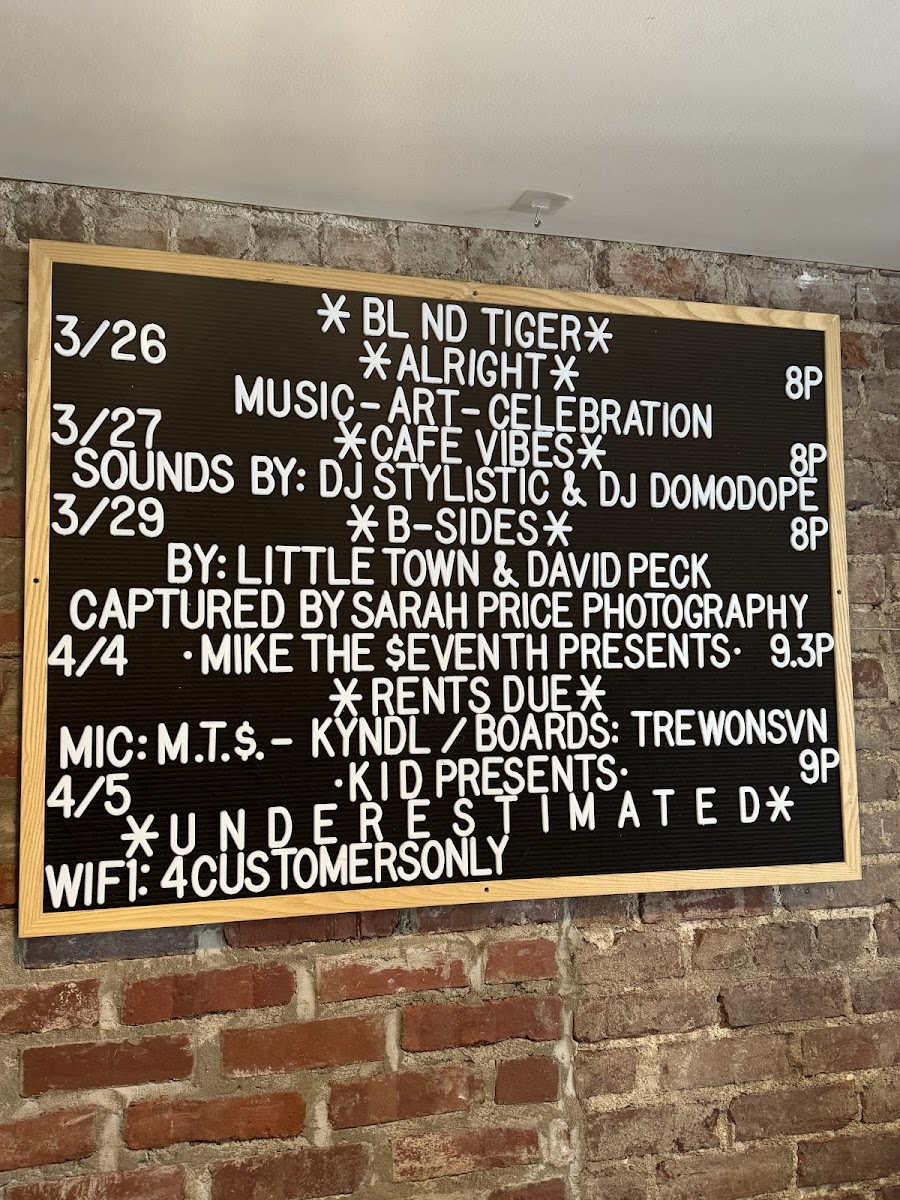 *BL ND TIGER*
3/26 *ALRIGHT* 8P
MUSIC-ART-CELEBRATION
3/27 *CAFE VIBES* 8P
SOUNDS BY: DJ STYLISTIC & DJ DOMODOPE
3/29 *B-SIDES* 8P
BY: LITTLE TOWN & DAVID PECK
CAPTURED BY SARAH PRICE PHOTOGRAPHY
4/4 ·MIKE THE $EVENTH PRESENTS· 9.3P
*RENTS DUE*
MIC: M.T.$. - KYNDL / BOARDS: TREWONSVN
4/5 ·KID PRESENTS· 9P
*UNDERESTIMATED*
WIF1: 4CUSTOMERSONLY